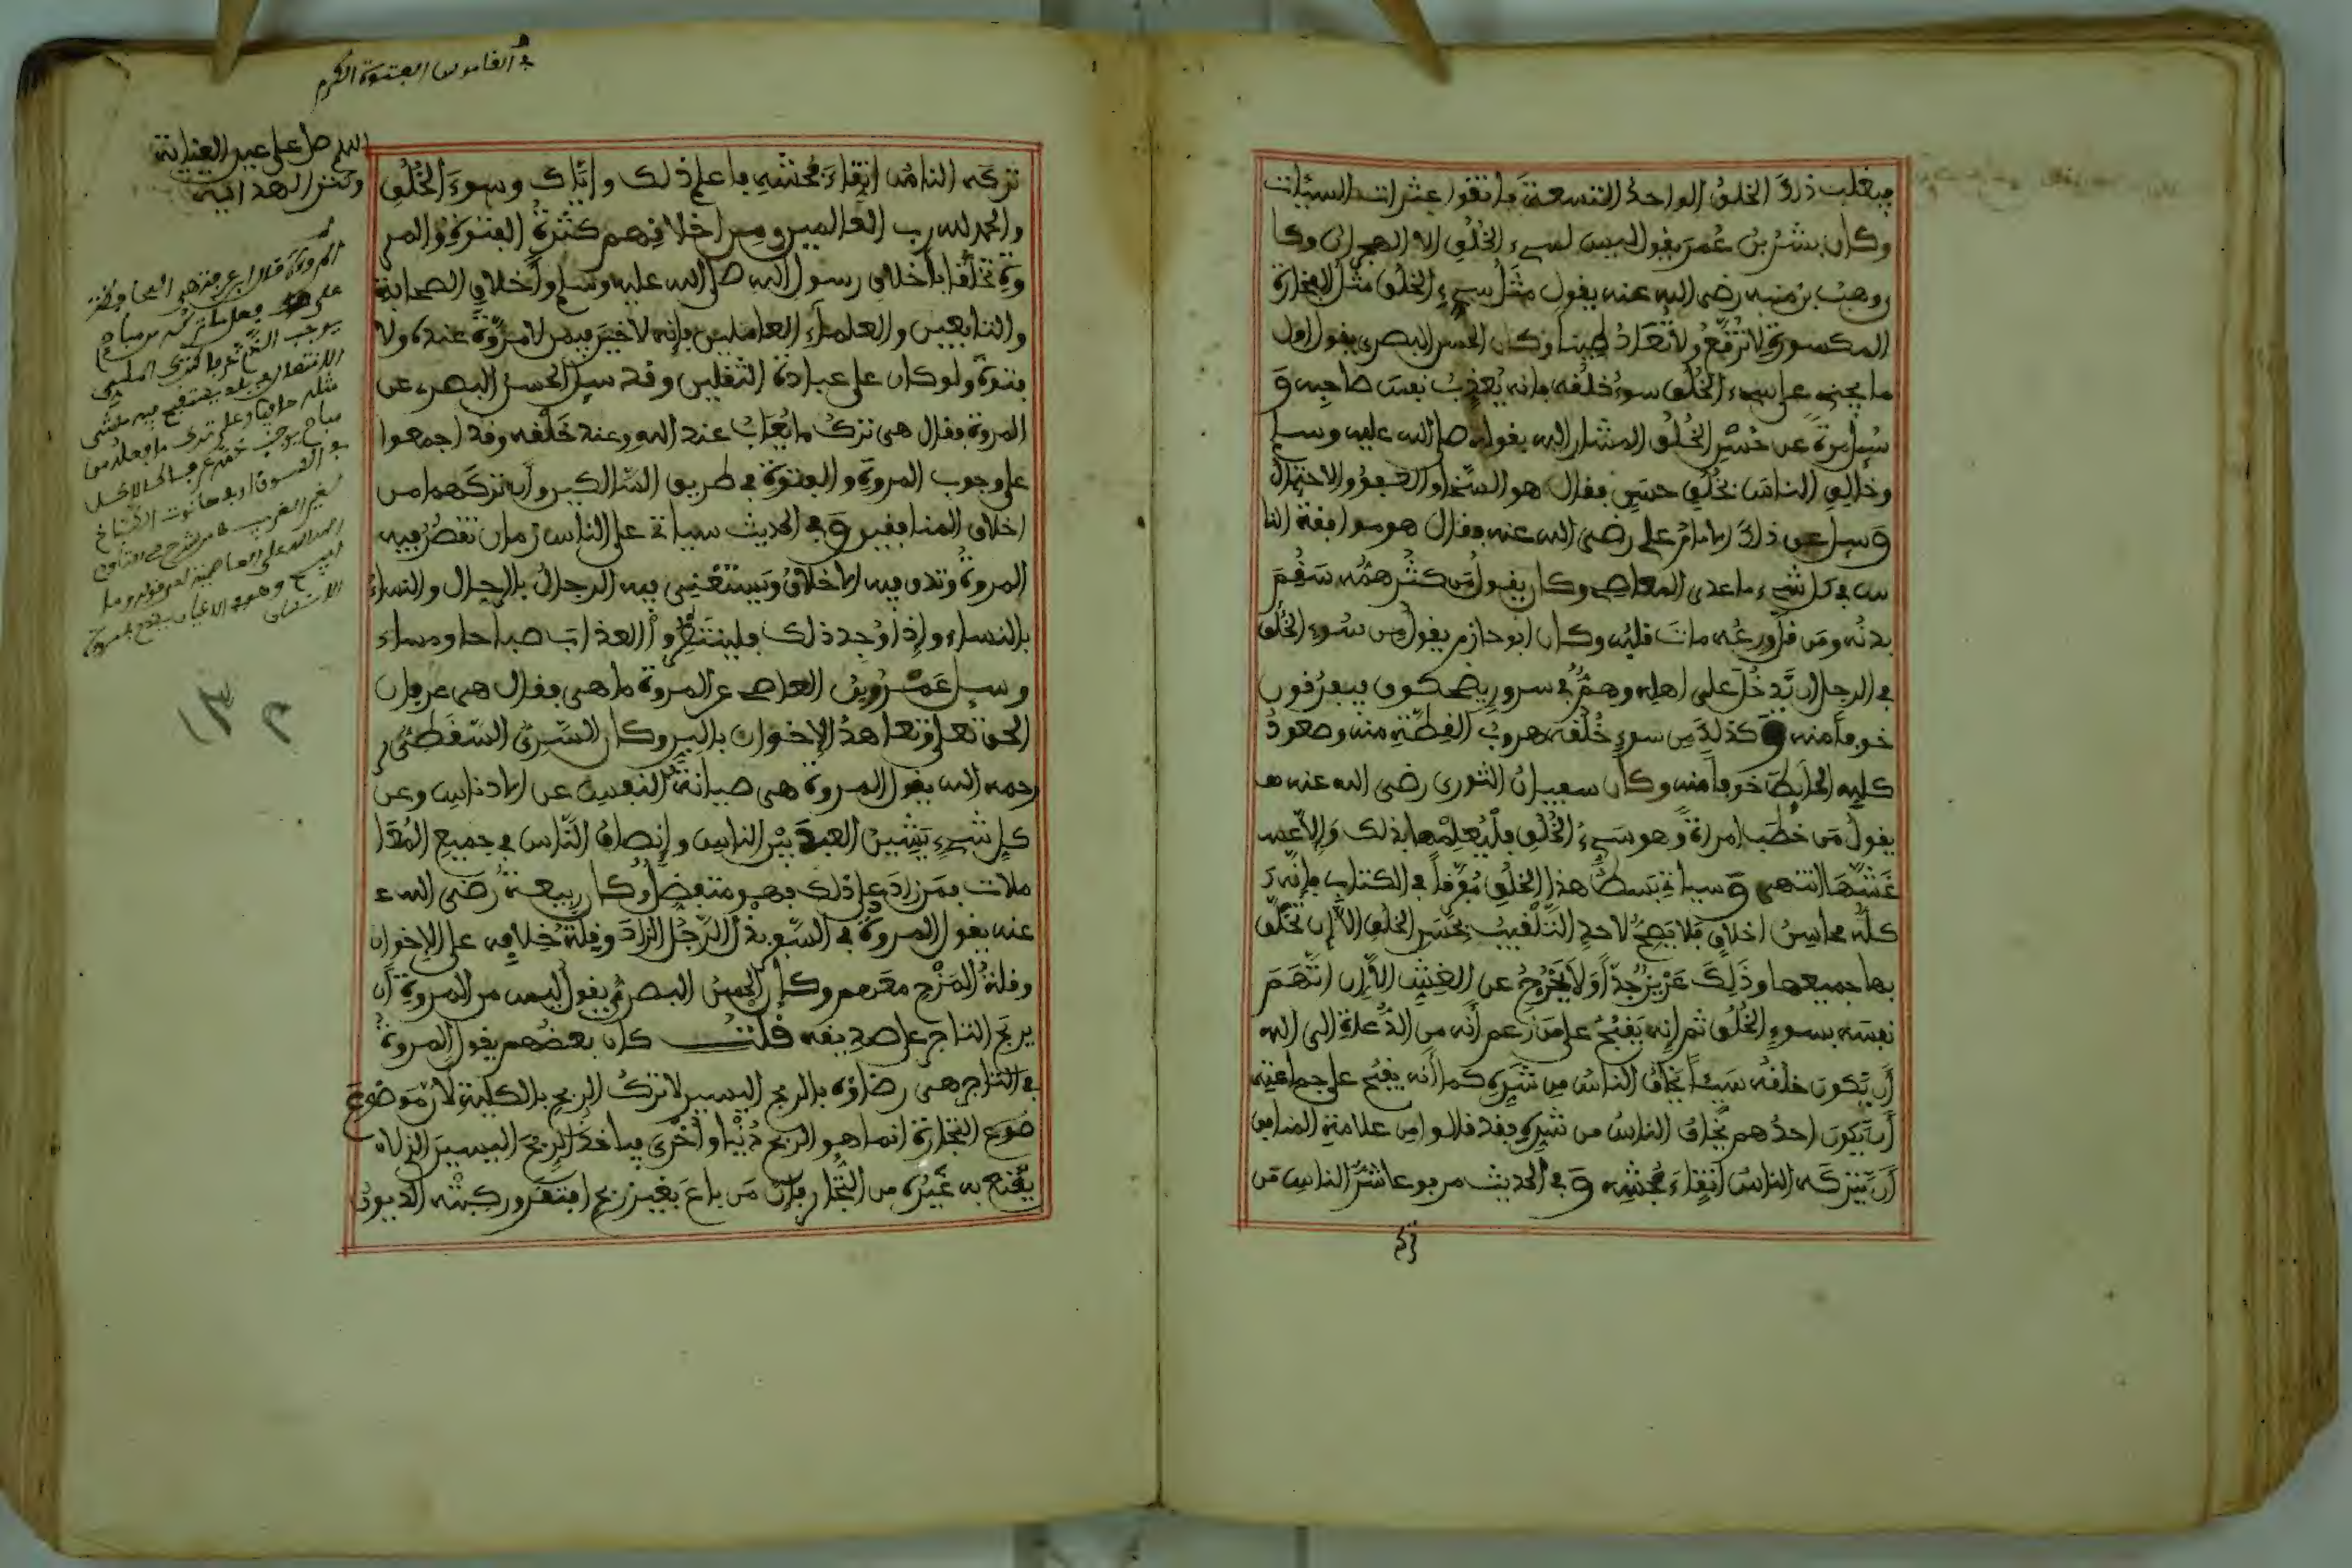 فيغلب ذلك الخلق الواحد التسعة فاتقوا عثرات السيئات
وكان بشر بن عمر يقول ليس لسيء الخلق إلا الهجران وكا
ن وهب بن منبه رضي الله عنه يقول مثل سيء الخلق مثل الفخارة
المكسورة لا ترقع ولا تعاد طينا وكان الحسن البصري يقول أول
ما يجني على سيء الخلق سوء خلقه فإنه يعذب نفس صاحبه و
سئل مرة عن حسن الخلق المشار إليه بقوله صلى الله عليه وسلم
وخالق الناس بخلق حسن فقال هو السخاء والعفو والاحتمال
وسئل عن ذلك الإمام علي رضي الله عنه فقال هو موافقة النا
س في كل شيء ما عدى المعاصي وكان يقول من كثر همه سقم
بدنه ومن قل ورعه مات قلبه وكان أبو حازم يقول من سوء الخلق
في الرجل أن يدخل على أهله وهم في سرور يضحكون فيفرقون
خوفا منه وكذلك من سوء خلقه هروب القطة منه وصعود
كلبه الحائط خوفا منه وكان سفيان الثوري رضي الله عنه
يقول من خطب امرأة وهو سيء الخلق فليعلمها بذلك وإلا فقد
غشها انتهى وسيأتي بسط هذا الخلق مفرقا في الكتاب فإنه
كله محاسن أخلاق فلا يصح لأحد التلقيب بحسن الخلق إلا إن تخلق
بها جميعها وذلك عزيز جدا ولا يخرج عن الغش إلا إن اتهم
نفسه بسوء الخلق ثم إنه يقبح على من زعم أنه من الدعاة إلى الله
أن يكون خلقه سيئا يخاف الناس من شره كما أنه يقبح على جماعته
أن يكون أحدهم يخاف الناس من شره فقد قالوا من علامة المنافق
أن يتركه الناس اتقاء فحشه وفي الحديث مرفوعا شر الناس من
تركه الناس اتقاء فحشه فاعلم ذلك وإياك وسوء الخلق
والحمد لله رب العالمين ومن أخلاقهم كثرة الفتوة والمر
وة تخلقا بأخلاق رسول الله صلى الله عليه وسلم وأخلاق الصحابة
والتابعين والعلماء العاملين فإنه لا خير فيمن لا مروة عنده ولا
فتوة ولو كان على عبادة الثقلين وقد سئل الحسن البصري عن
المروة فقال هي ترك ما يعاب عند الله وعند خلقه وقد أجمعوا
على وجوب المروة والفتوة في طريق الله الكبير وأن تركهما من
أخلاق المنافقين وفي الحديث سيأتي على الناس زمان تنقص فيه
المروة وتدق فيه الأخلاق ويستغني فيه الرجال بالرجال والنساء
بالنساء وإذا وجد ذلك فلينتظروا العذاب صباحا ومساء
وسئل عمرو بن العاصي عن المروة ما هي فقال هي عرفان
الحق تعلى وتعاهد الإخوان بالبر وكان السري السقطي
رحمه الله يقول المروة هي صيانة النفس عن الأدناس وعن
كل شيء يشين العبد بين الناس وإنصاف الناس في جميع المعا
ملات فمن زاد على ذلك فهو متفضل وكان ربيعة رضي الله
عنه يقول المروة في السفر بذل الرجل الزاد وقلة خلافه على الإخوان
وقلة المزح معهم وكان الحسن البصري يقول ليس من المروة أن
يربح التاجر على صديقه قلت كان بعضهم يقول المروة
في التاجر هي رضاؤه بالربح اليسير لا ترك الربح بالكلية لأن موضوع
ضوع التجارة إنما هو الربح دنيا وأخرى فيأخذ الربح اليسير الذي لا
يقنع به غيره من التجار فإن من باع بغير ربح افتقر وركبته الديون
في القاموس الفتوة الكرم
اللهم صل على عين العناية
وكنز الهداية
المروءة قال ابن عرفة هي المحافظة
على فعل ما تركه من مباح
يوجب الذم عرفا كترك الملي
الانتعال في بلد يستقبح فيه مشي
مثله حافيا وعلى ترك ما فعله من
مباح يوجب ذمه عرفا كالأكل
في السوق أو في حانوت الطباخ
لغير الغريب